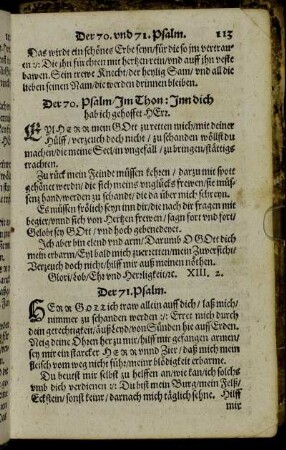 Der 70. vnd 71. Psalm. 113
Das wirdt ein schönes Erbe seyn/ für die so jm vertrau-
en :/: Die jhn fürchten mit hertzen rein/ vnd auff jhn veste
bawen. Sein trewe Knecht/ der heylig Sam/ vnd all die
lieben seinen Nam/ die werden drinnen bleiben.
Der 70. Psalm/ Im Thon: Inn dich
hab ich gehoffet HErr.
EYl HERR mein GOtt zu retten mich/ mit deiner
Hülff/ verzeuch doch nicht/ zu schanden wöllst du
machen/ die meine Seel/ in vngefäll/ zu bringen/ stättigs
trachten.
Zu rück mein Feindt müssen kehren/ darzu mit spott
gehönet werdn/ die sich meins vnglücks frewen/ sie müs-
senz hand werden/ zu schand/ die da über mich schreyn.
Es müssen frölich seyn inn dir/ die nach dir fragen mit
begier/ vnnd sich von Hertzen frewen/ sagn fort vnd fort/
Gelobt sey GOtt/ vnd hoch gebenedeyet.
Ich aber bin elend vnd arm/ Darumb O GOtt dich
mein erbarm/ Eyl bald mich zu erretten/ mein Zuversicht/
Verzeuch doch nicht/ hilff mir auß meinen nöthen.
Glori/ lob/ Ehr vnd Herrligkeit/ ꝛc. XIII. 2.
Der 71. Psalm.
HERR GOtt ich traw allein auff dich/ laß mich/
nimmer zu schanden werden :/: Erret mich durch
dein gerechtigkeit/ auß beyd/ von Sünden hie auff Erden.
Neig deine Ohren her zu mir/ hilf mir gefangen armen/
sey mir ein starcker HERR vnnd Zier/ daß mich mein
fleisch vom weg nicht führ/ meiner blödigkeit erbarme.
Du heutst mir selbst zu helffen an/ wie kan ich solchs
vmb dich verdienen :/: Du bist mein Burg/ mein Felß/
Eckstein/ sonst keinr/ darnach mich täglich sehne. Hilff
mir